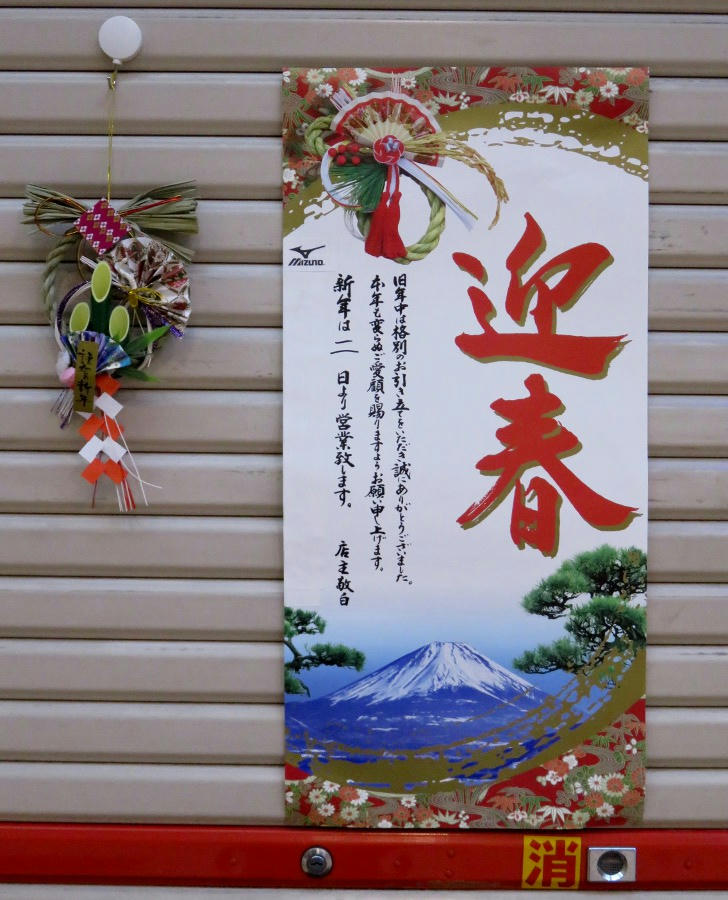 迎春
MIZUNO
旧年中は格別のお引き立てをいただき誠にありがとうございました。
本年も変らぬご愛顧を賜りますようお願い申し上げます。
新年は 二 日より営業致します。 店主敬白
謹賀新年
消